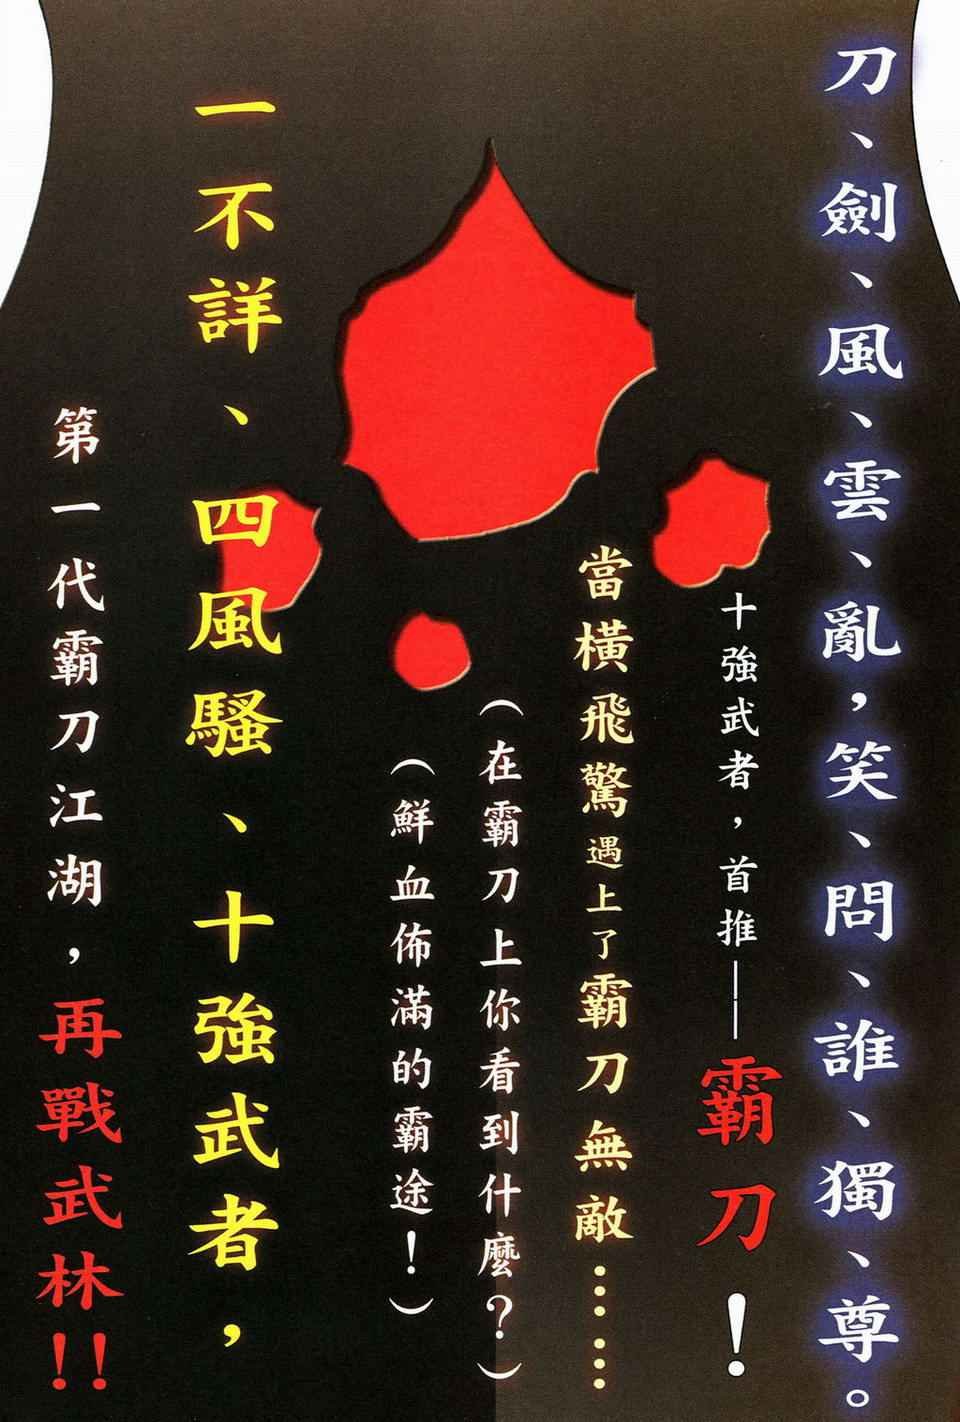 刀、劍、風、雲、亂，笑、問、誰、獨、尊。
十強武者，首推——霸刀！
當橫飛驚遇上了霸刀無敵……
（在霸刀上你看到什麼？）
（鮮血佈滿的霸途！）
一不詳、四風騷、十強武者，
第一代霸刀江湖，再戰武林！！